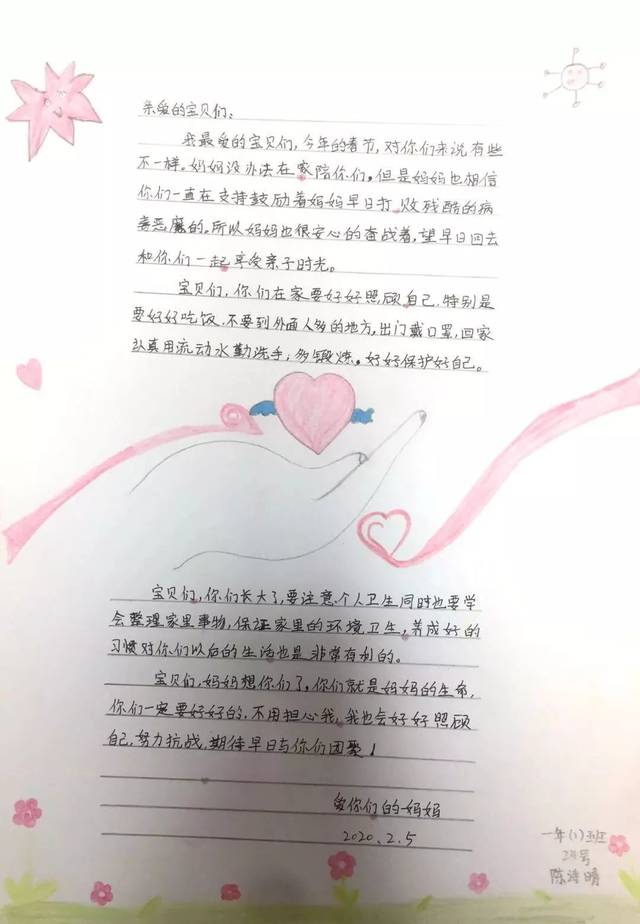 亲爱的宝贝们:
我最爱的宝贝们,今年的春节,对你们来说有些
不一样。妈妈没办法在家陪你们。但是妈妈也相信
你们一直在支持鼓励着妈妈早日打败残酷的病
毒恶魔的。所以妈妈也很安心的奋战着,望早日回去
和你们一起享受亲子时光。
宝贝们,你们在家要好好照顾自己,特别是
要好好吃饭,不要到外面人多的地方,出门戴口罩,回家
认真用流动水勤洗手,多锻炼。好好保护好自己。
宝贝们,你们长大了,要注意个人卫生同时也要学
会整理家里事物,保证家里的环境卫生,养成好的
习惯对你们以后的生活也是非常有利的。
宝贝们,妈妈想你们了,你们就是妈妈的生命,
你们一定要好好的,不用担心我,我也会好好照顾
自己,努力抗战,期待早日与你们团聚!
爱你们的妈妈
2020.2.5
一年(1)班
号
陈 晴